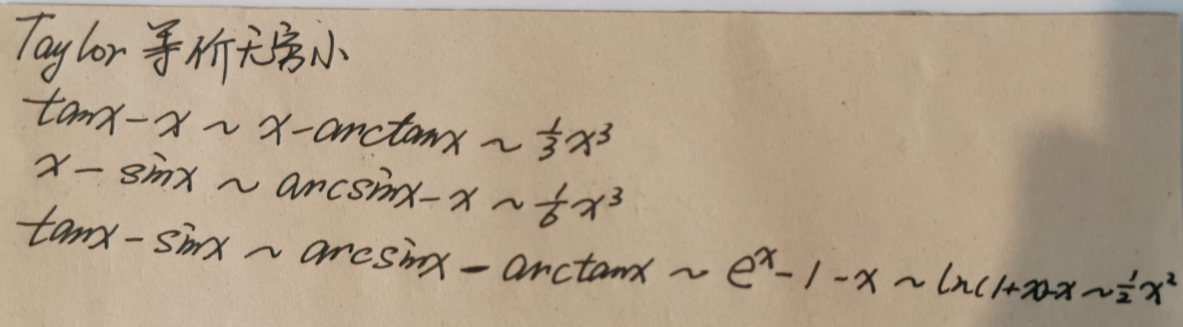 Taylor 等价无穷小
tanx - x ~ x - arctanx ~ 1/3 x³
x - sinx ~ arcsinx - x ~ 1/6 x³
tanx - sinx ~ arcsinx - arctanx ~ eˣ - 1 - x ~ ln(1+x)-x ~ 1/2 x²